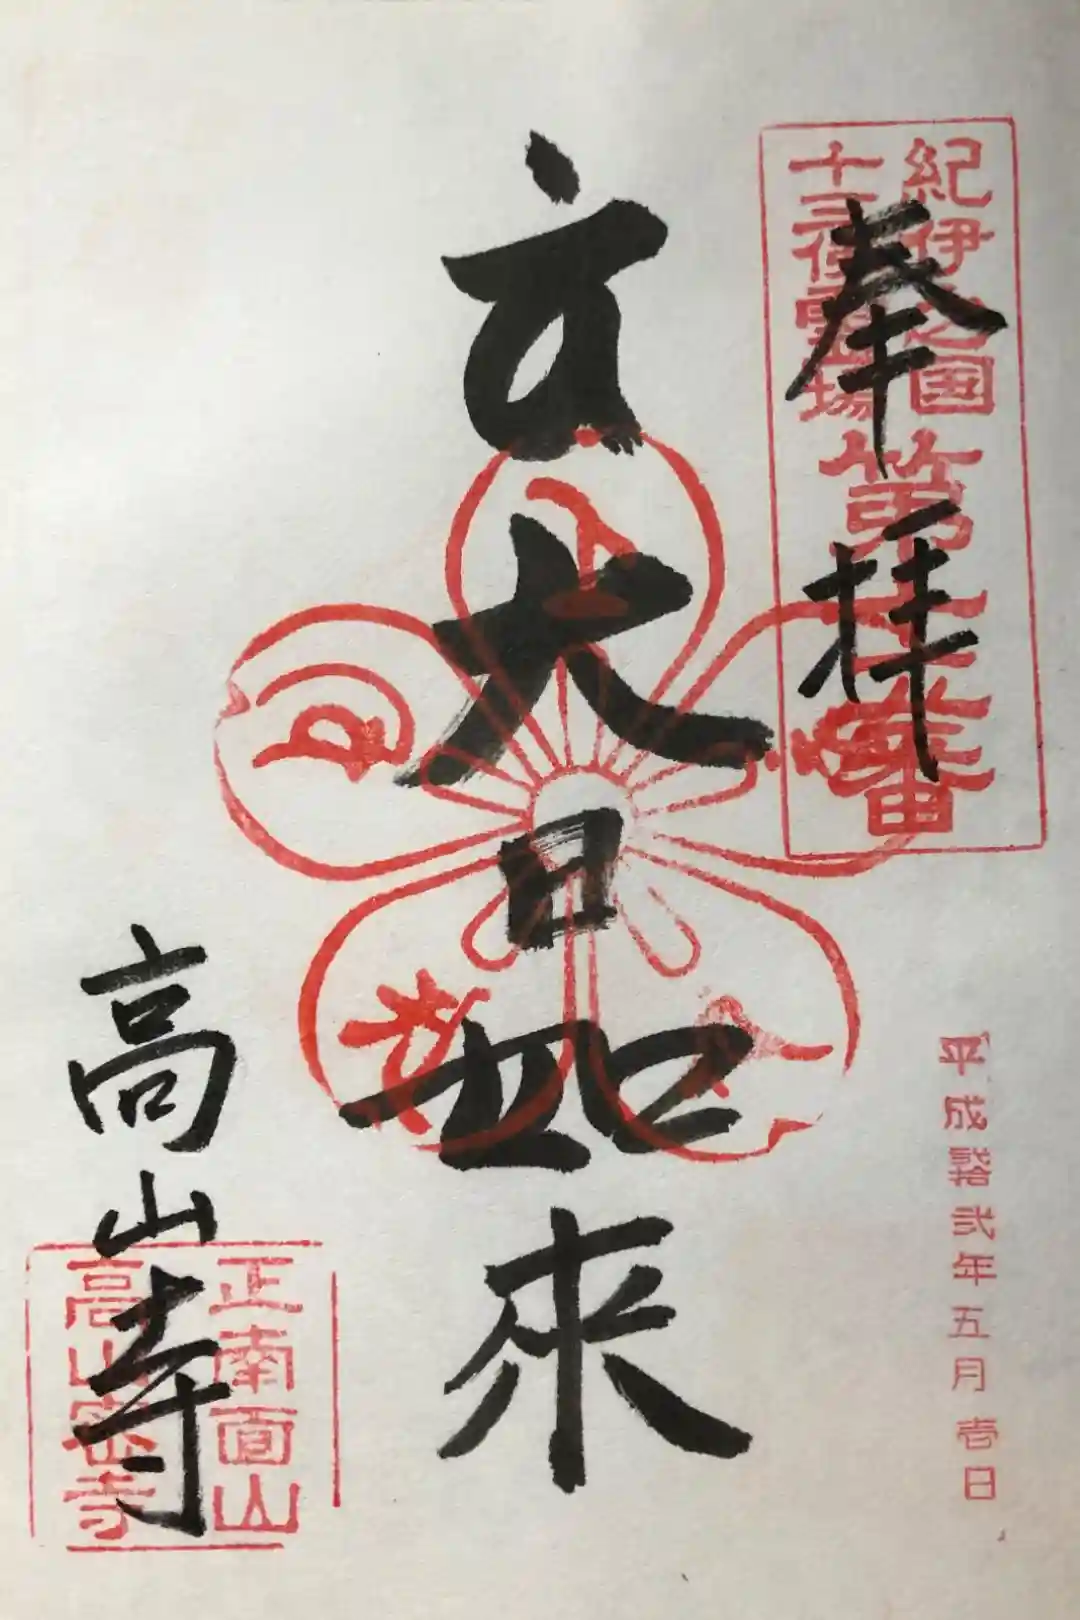 奉拝
紀伊之国
十三佛霊場
大日如來
高山寺
正南面山
高山密寺
平成
年五月壱日